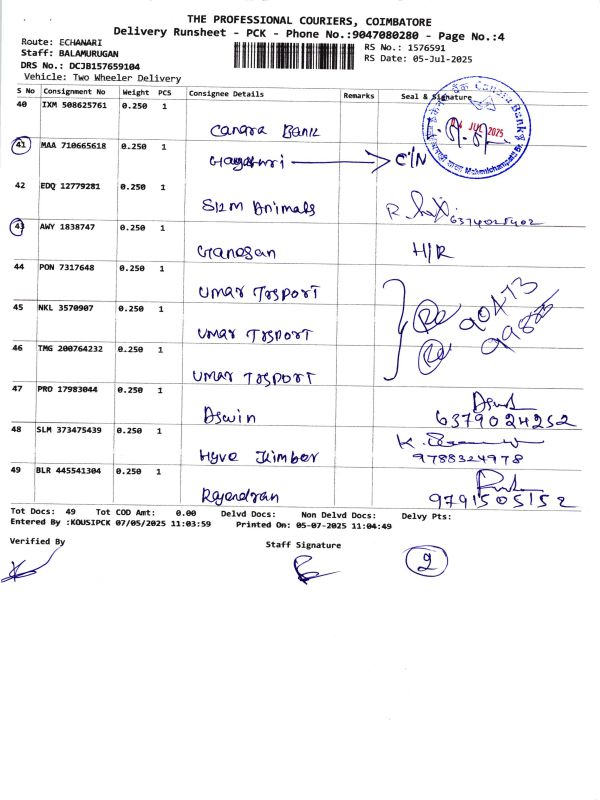 THE PROFESSIONAL COURIERS, COIMBATORE
Delivery Runsheet - PCK - Phone No.:9047080280 - Page No.:4
Route: ECHANARI
Staff: BALAMURUGAN
DRS No.: DCJB157659104
Vehicle: Two Wheeler Delivery
RS No.: 1576591
RS Date: 05-Jul-2025
S No Consignment No Weight PCS Consignee Details Remarks Seal & Signature
40 IXM 508625761 0.250 1
Canara Bank
JUL 2025
41 MAA 710665618 0.250 1
C/N
42 EDQ 12779281 0.250 1
SRM Animals
6374025402
43 AWY 1838747 0.250 1
Ganesan H/R
44 PON 7317648 0.250 1
Umar Trsport
45 NKL 3570907 0.250 1
Umar Trsport
46 TMG 200764232 0.250 1
Umar Trsport
90473
47 PRO 17983044 0.250 1
Aswin
6379024252
48 SLM 373475439 0.250 1
Hyve Kimber
9788324978
49 BLR 445541304 0.250 1
Rajendran
9791505152
Tot Docs: 49 Tot COD Amt: 0.00 Delvd Docs: Non Delvd Docs: Delvy Pts:
Entered By :KOUSIPCK 07/05/2025 11:03:59 Printed On: 05-07-2025 11:04:49
Verified By Staff Signature
2